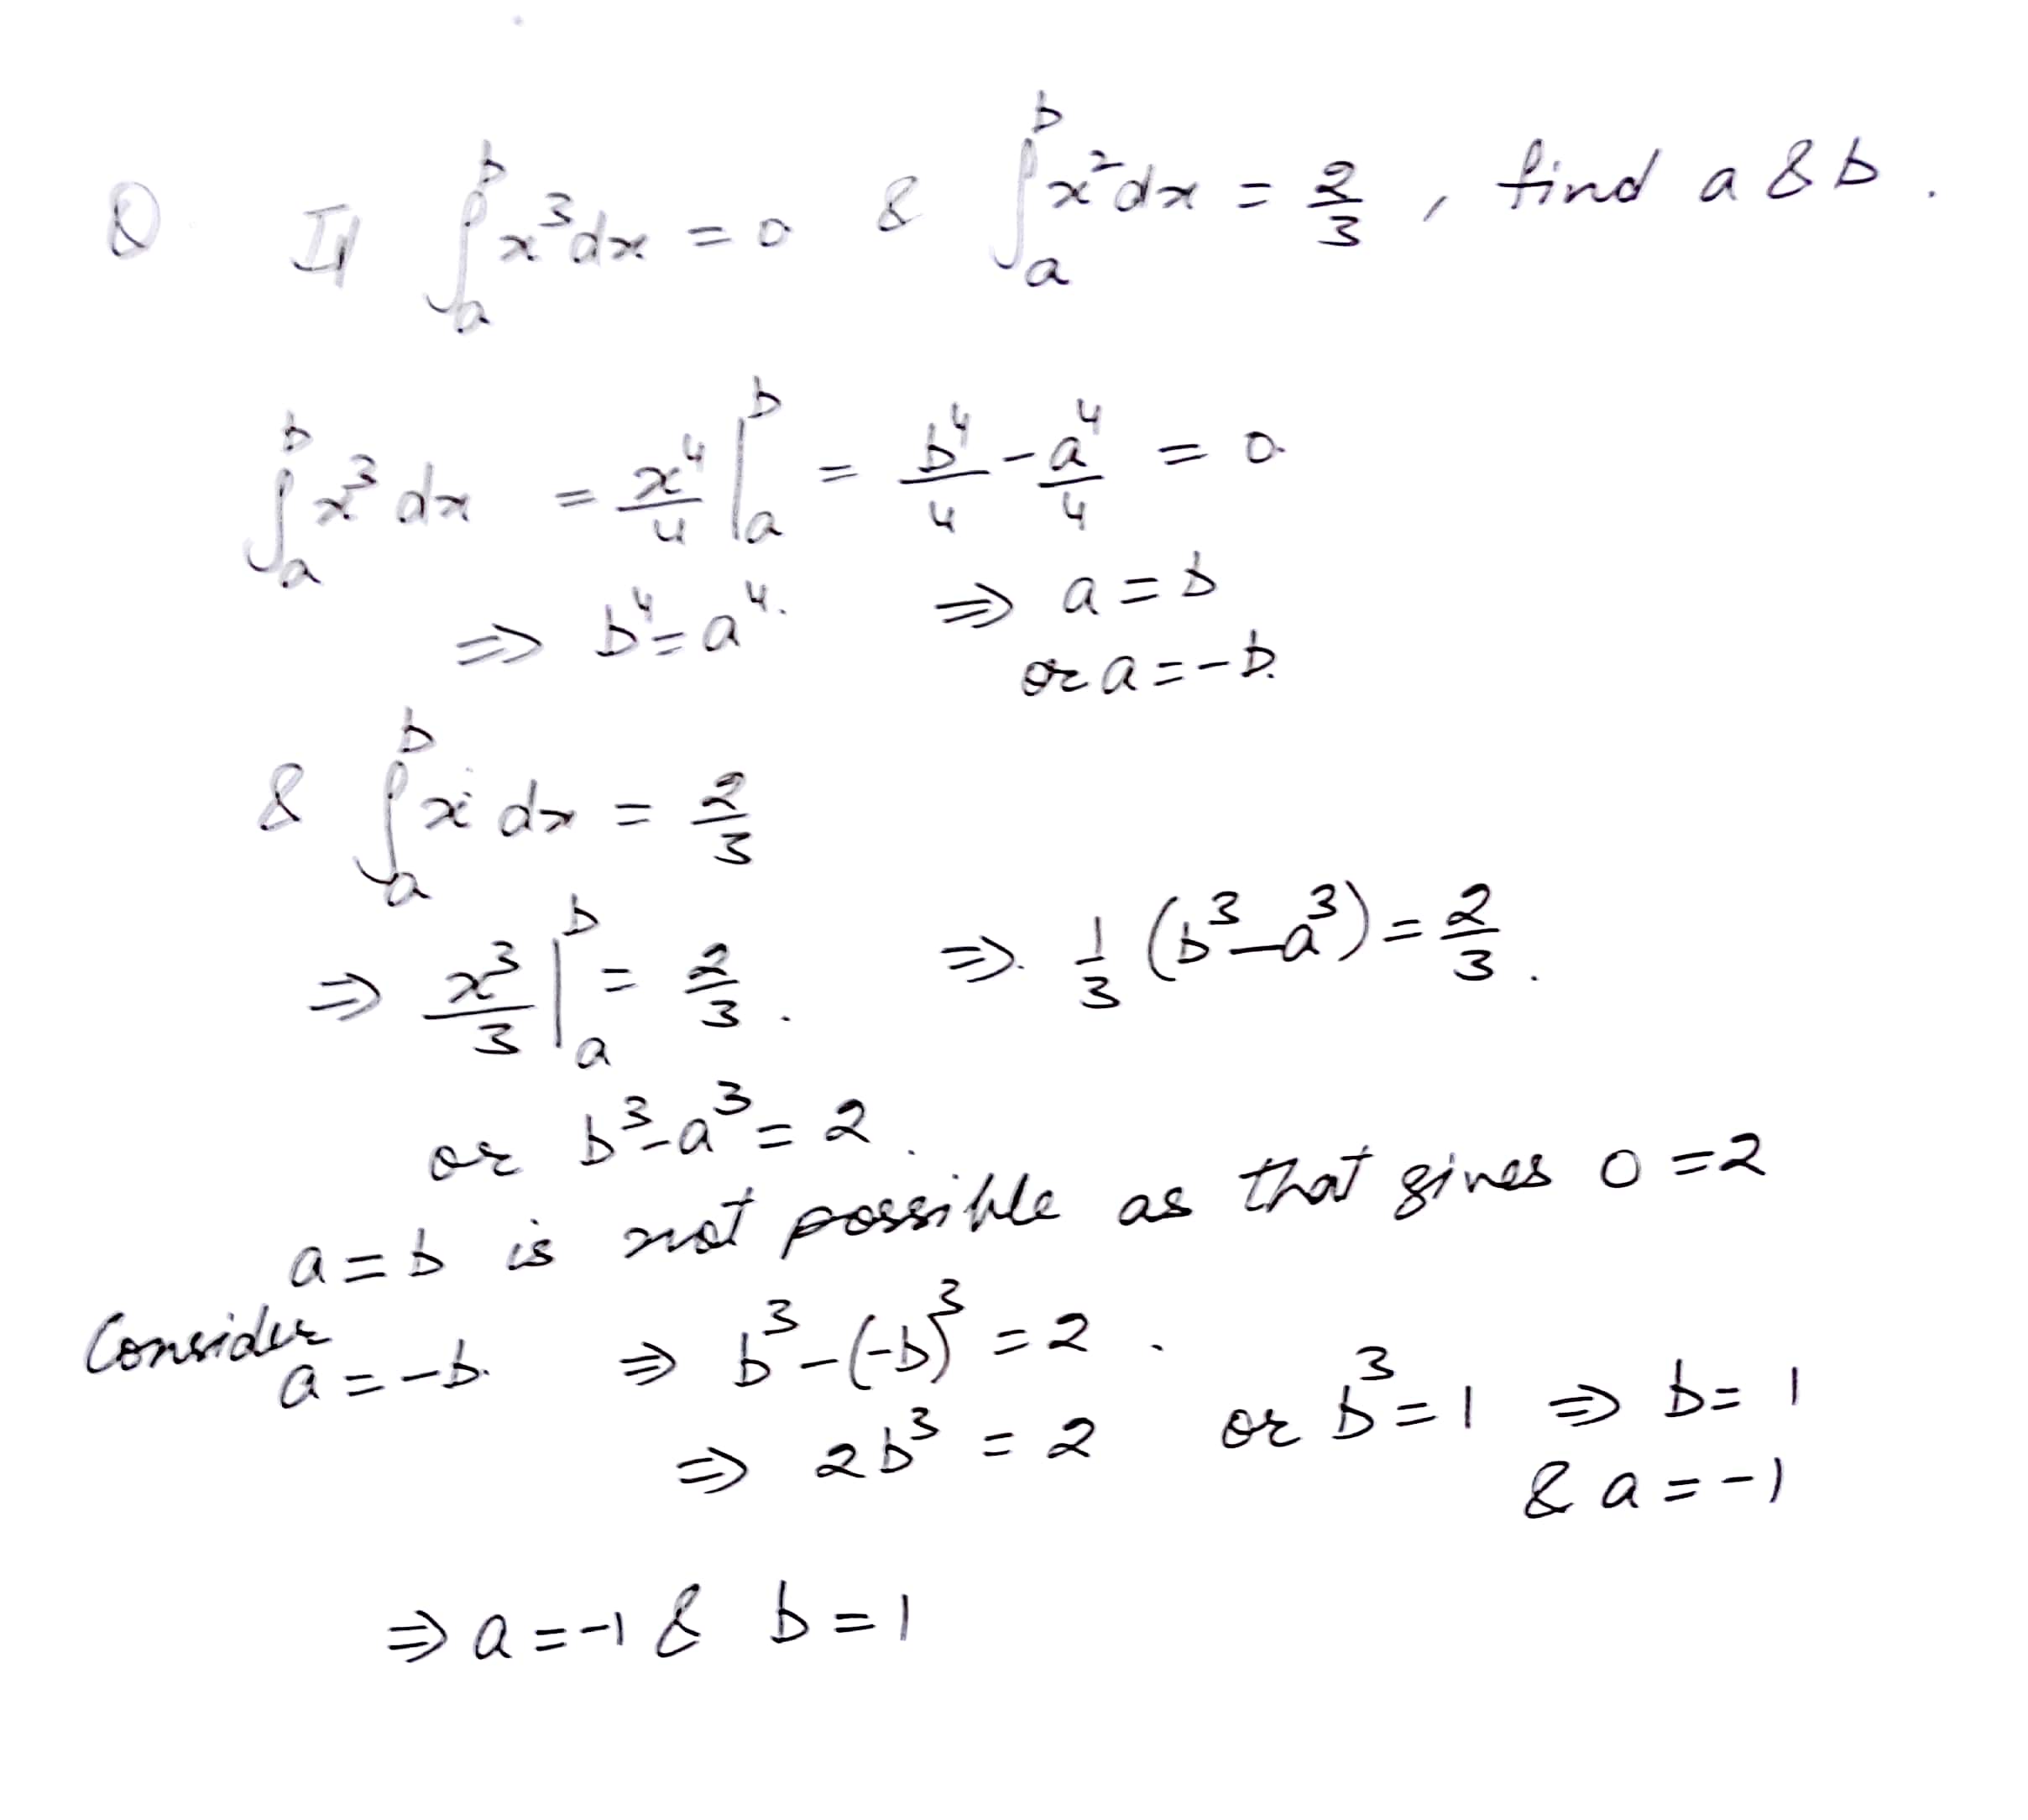 Q. If ∫_a^b x³dx = 0 & ∫_a^b x²dx = 2/3 , find a & b .
∫_a^b x³ dx = x⁴/4 |_a^b = b⁴/4 - a⁴/4 = 0
⇒ b⁴ = a⁴. ⇒ a = b
or a = -b.
& ∫_a^b x² dx = 2/3
⇒ x³/3 |_a^b = 2/3 . ⇒. 1/3 (b³-a³) = 2/3 .
or b³-a³ = 2 .
a = b is not possible as that gives 0 = 2
Consider
a = -b. ⇒ b³-(-b)³ = 2 .
⇒ 2b³ = 2 or b³ = 1 ⇒ b = 1
& a = -1
⇒ a = -1 & b = 1